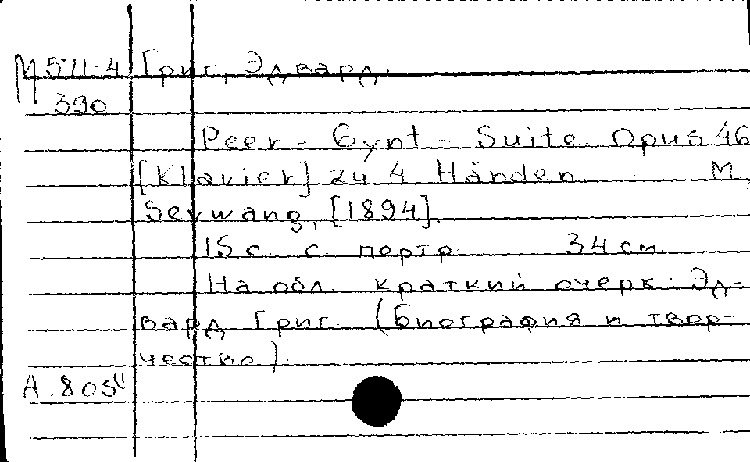 М 5:11-4 Григ, Эдвард.
390
Peer-Gynt-Suite. Opus 46
[Klavier] zu 4 Händen. М,
Seywang, [1894].
15 с. с портр. 34 см.
На обл. краткий очерк: Эд-
вард Григ. (биография и твор-
чество).
А. 805